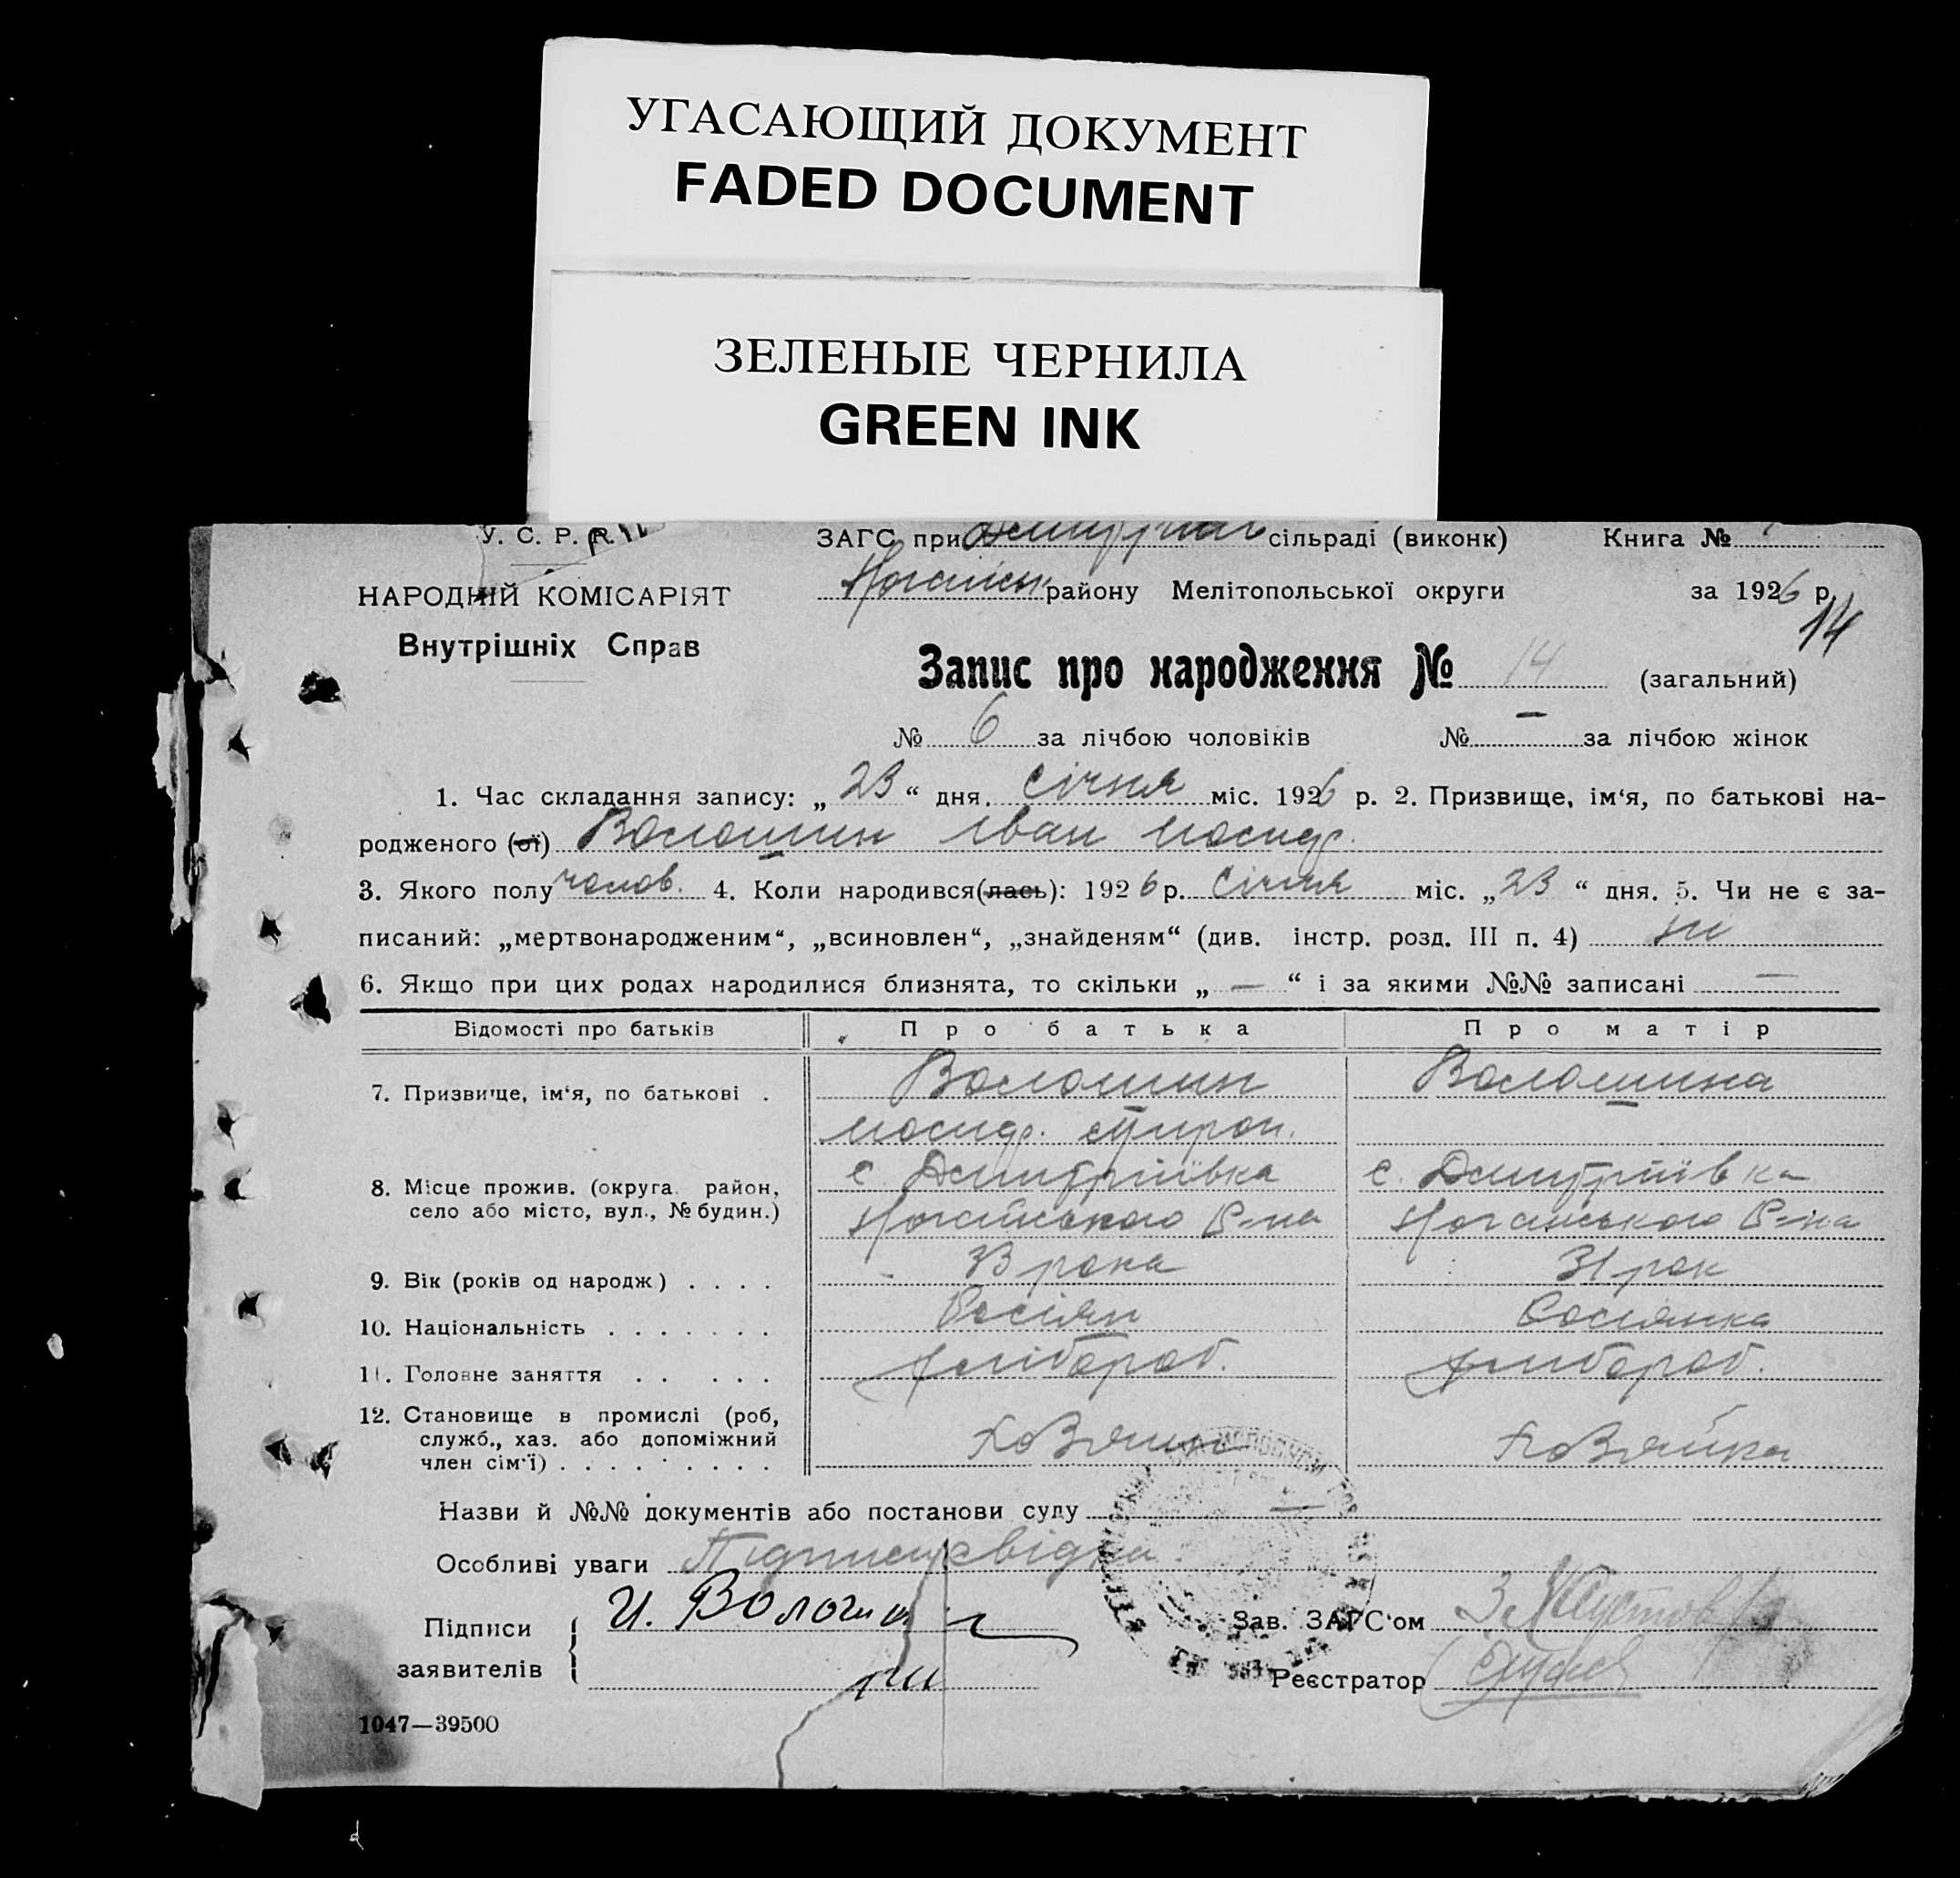 УГАСАЮЩИЙ ДОКУМЕНТ
FADED DOCUMENT
ЗЕЛЕНЫЕ ЧЕРНИЛА
GREEN INK
У. С. Р. Р. ЗАГС при сільраді (виконк) Книга №
НАРОДНІЙ КОМІСАРІЯТ Ногайськ району Мелітопольської округи за 1926 р.
14
Внутрішніх Справ
Запис про народження № 14 (загальний)
№ 6 за лічбою чоловіків № — за лічбою жінок
1. Час складання запису: „ 23 “ дня. Січня міс. 1926 р. 2. Призвище, ім‘я, по батькові на-
родженого (ої) Волошин Іван Йосиф.
3. Якого полу чолов. 4. Коли народився(лась): 1926 р. Січня міс. „ 23 “ дня. 5. Чи не є за-
писаний: „мертвонародженим“, „всиновлен“, „знайденям“ (див. інстр. розд. III п. 4) ні
6. Якщо при цих родах народилися близнята, то скільки „ — “ і за якими №№ записані —
Відомості про батьків Про батька Про матір
7. Призвище, ім‘я, по батькові . Волошин Волошина
Йосиф.
8. Місце прожив. (округа, район, село або місто, вул., № будин.) с. Дмитріївка с. Дмитріївка
Ногайського Р-на Ногайського Р-на
9. Вік (років од народж.) . . . . 33 рока 31 рок
10. Національність . . . . . . . Росіян Росіянка
11. Головне заняття . . . . . хлібороб. хлібороб.
12. Становище в промислі (роб, служб., хаз. або допоміжний член сім‘ї) . . . . . . . . . Хозяин Хозяйка
Назви й №№ документів або постанови суду —
Особливі уваги
Підписи заявителів И. Волошин
Зав. ЗАГС‘ом
Реєстратор
1047—39500